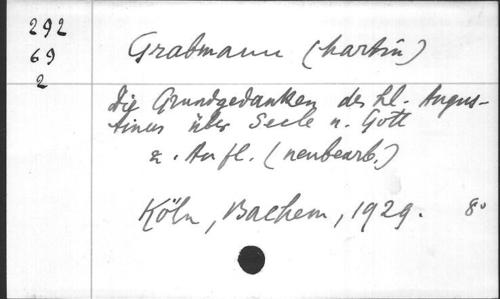 292
69
2
Grabmann (Martin)
Die Grundgedanken des hl. Augus-
tinus über Seele u. Gott
2. Aufl. (neubearb.)
Köln, Bachem, 1929. 8°